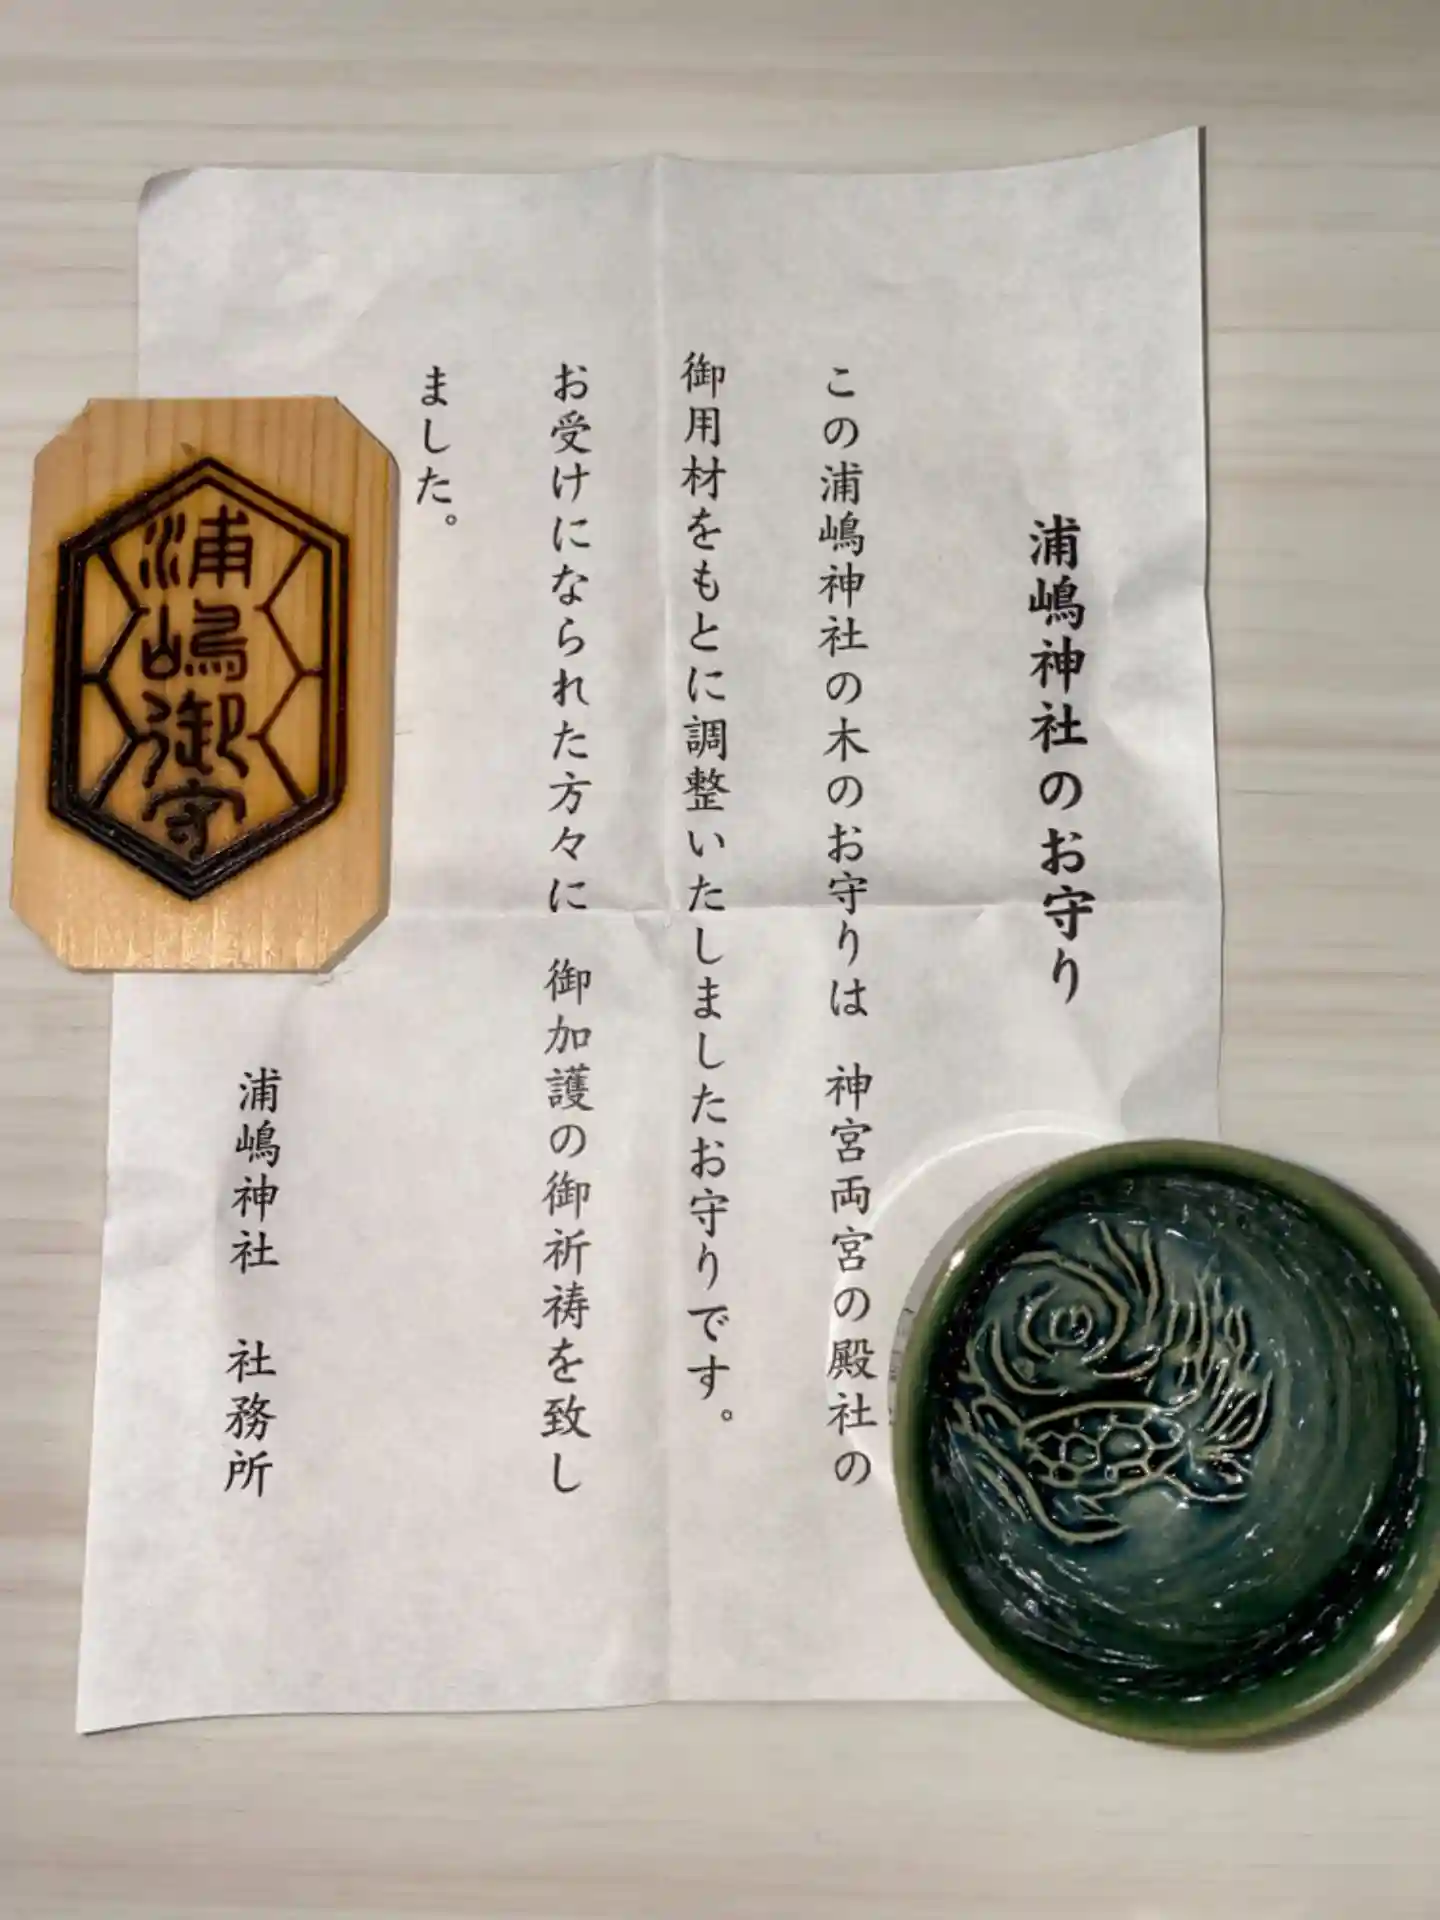 浦嶋神社のお守り
この浦嶋神社の木のお守りは　神宮両宮の殿社の
御用材をもとに調整いたしましたお守りです。
お受けになられた方々に　御加護の御祈祷を致し
ました。
浦嶋神社　社務所
浦嶋御守